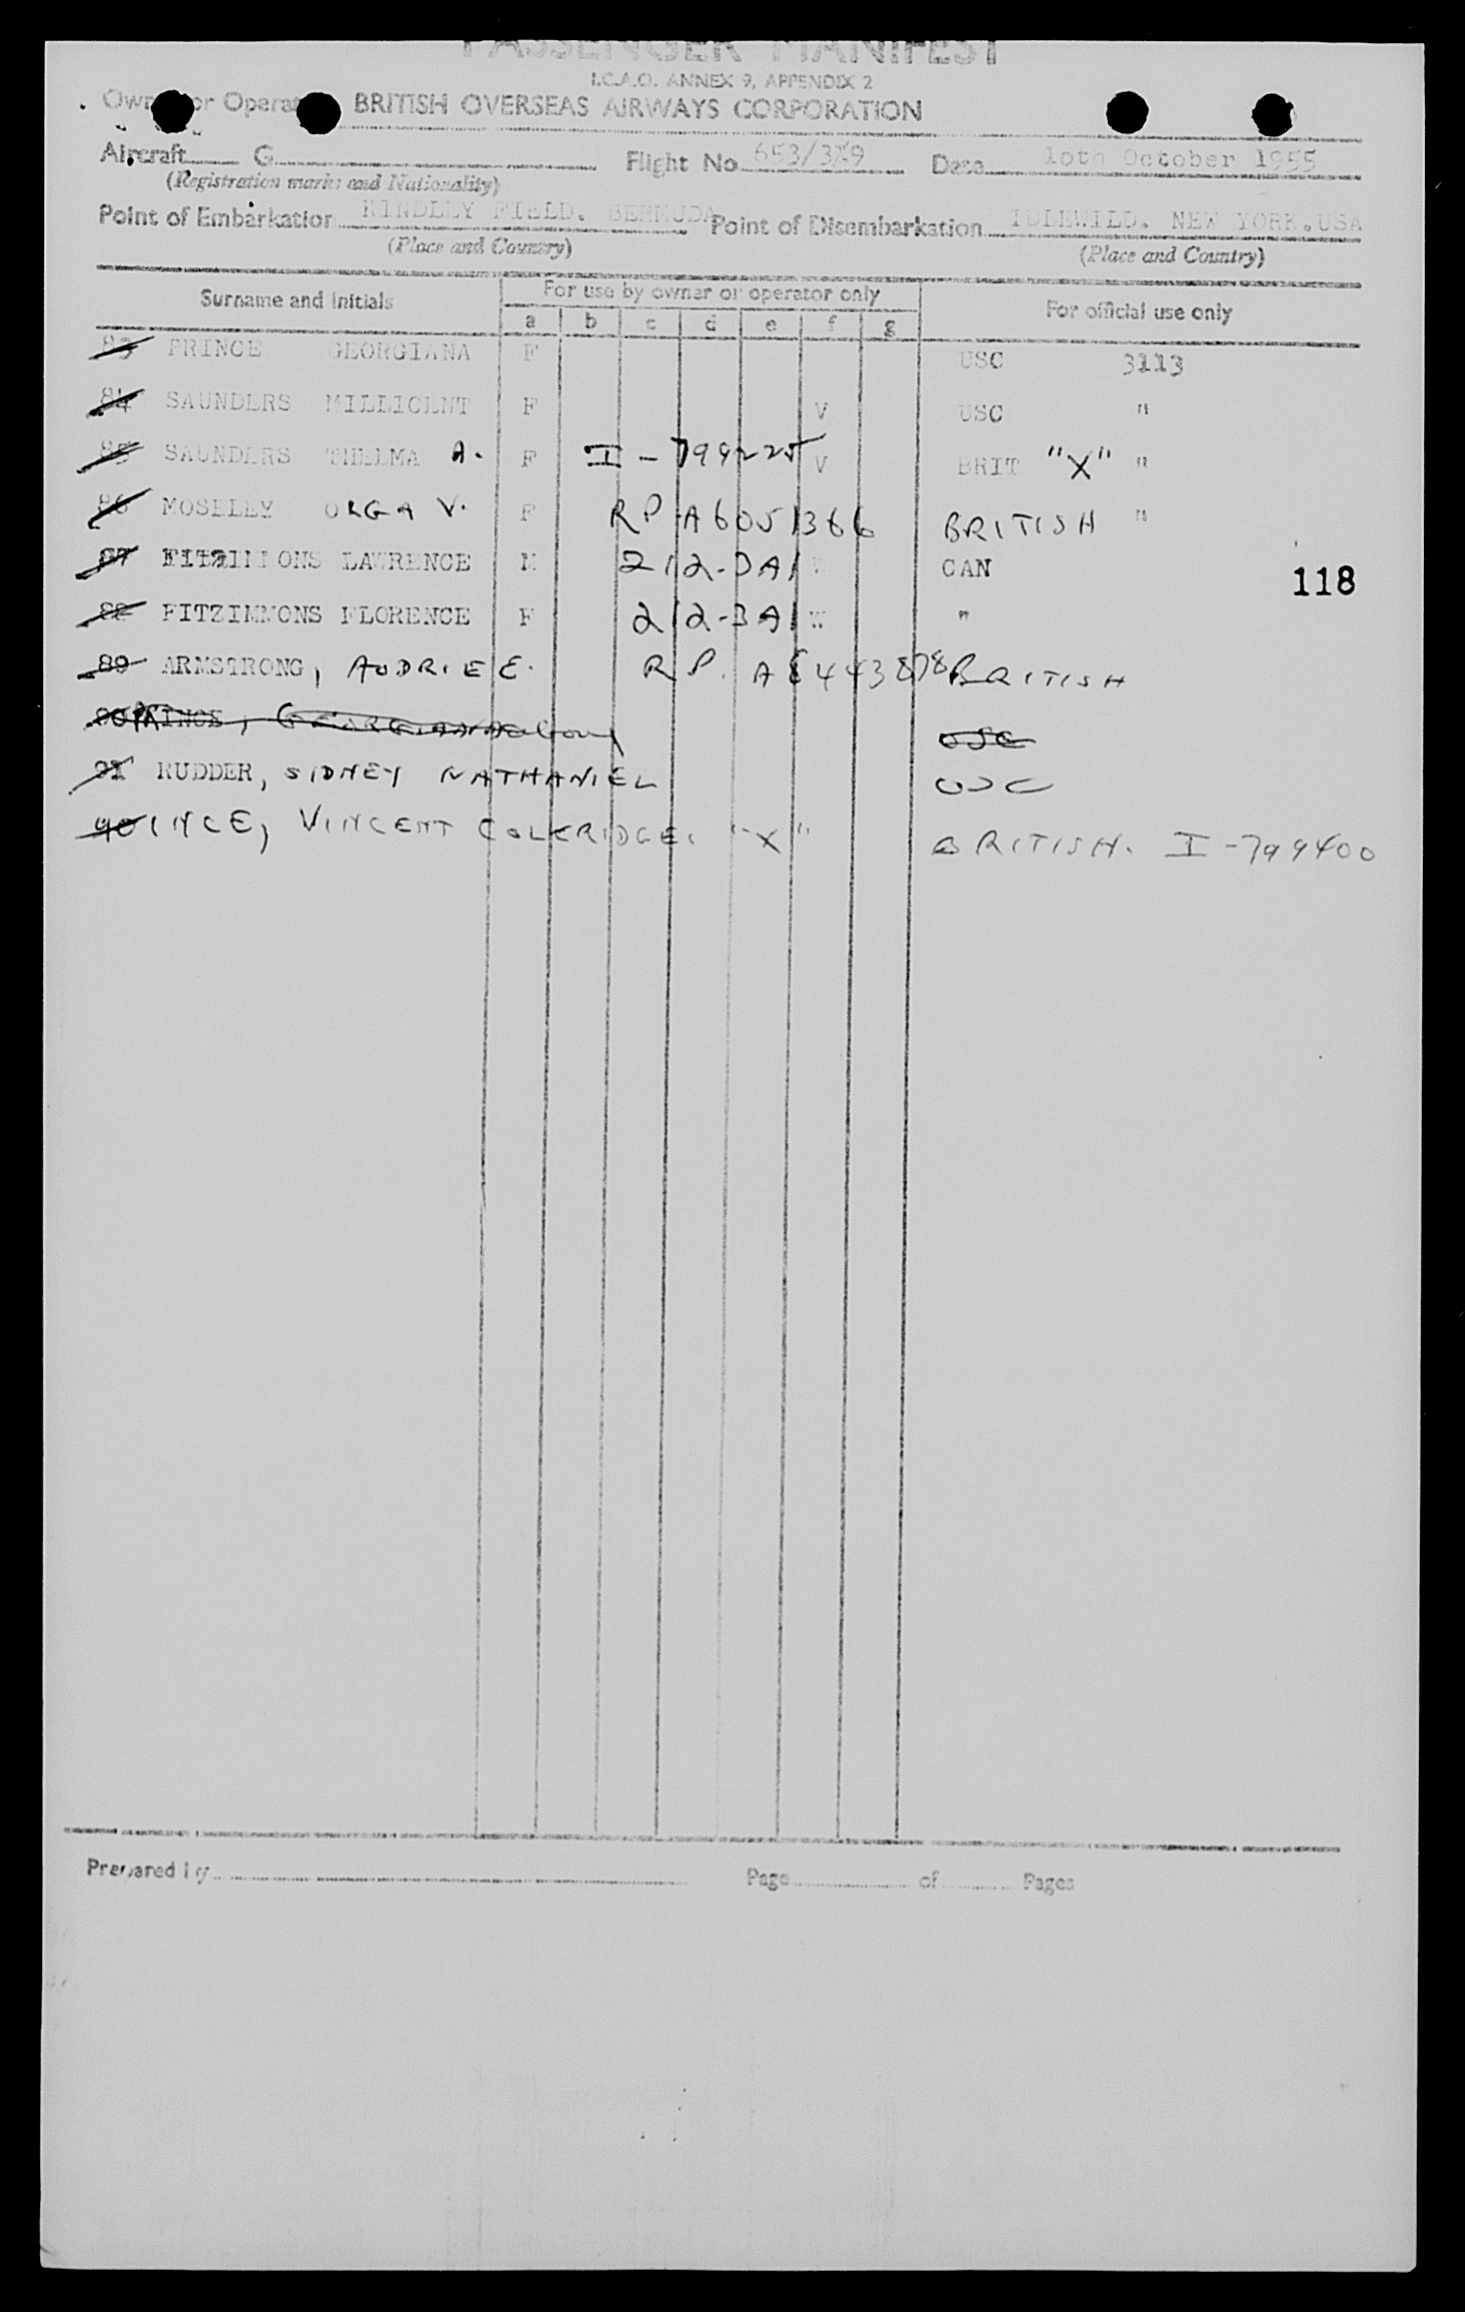 PASSENGER MANIFEST
I.C.A.O. ANNEX 9, APPENDIX 2
Owner or Operator BRITISH OVERSEAS AIRWAYS CORPORATION
Aircraft G Flight No 653/3X9 Date 10th October 1955
(Registration marks and Nationality)
Point of Embarkation KINDLEY FIELD. BERMUDA Point of Disembarkation IDLEWILD. NEW YORK.USA
(Place and Country) (Place and Country)
Surname and Initials For use by owner or operator only For official use only
a b c d e f g
83 PRINCE GEORGIANA F USC 3113
84 SAUNDERS MILLICENT F V USC "
85 SAUNDERS THELMA A. F I-799225 V BRIT "X" "
86 MOSELEY ORGA V. F RP A6051366 BRITISH "
87 FITZIMMONS LAWRENCE M 212-3A1 W CAN
118
88 FITZIMMONS FLORENCE F 212-3A1 W "
89 ARMSTRONG, AUDRIE E. R.P. BRITISH
90 PRINCE, USC
91 RUDDER, SIDNEY NATHANIEL USC
90 INCE, VINCENT COLERIDGE. "X" BRITISH. I-799400
Prepared by Page of Pages